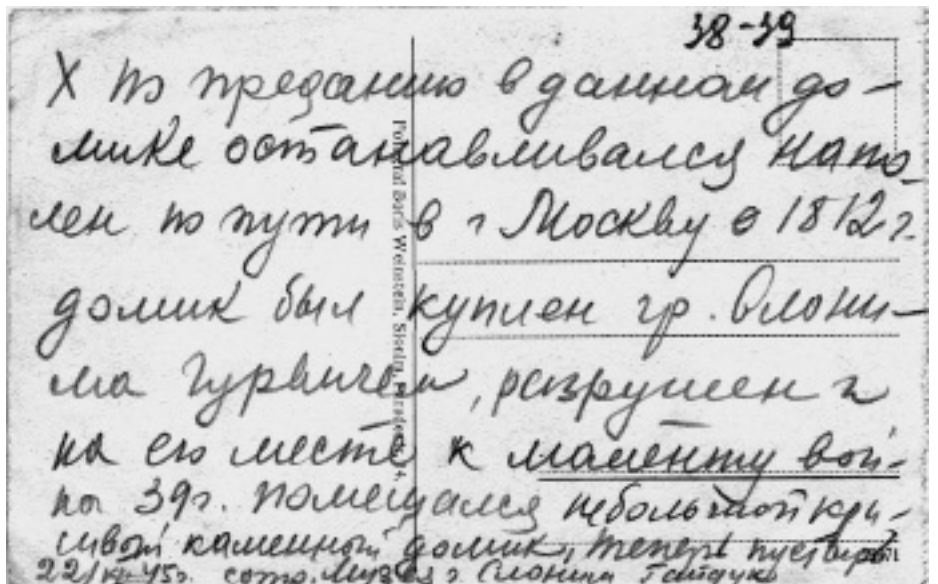 38-39
X по преданию в данном до-
мике останавливался Напо-
леон по пути в г Москву в 1812 г.
домик был куплен гр. Слони-
ма Гурвичем, разрушен и
на его месте к моменту вой-
ны 39г. помещался небольшой кра-
сивый каменный домик, теперь пустырь
22/VII-45г. сотр. Музея г Слонима Гайдуко
Fotograf Boris Weinstein, Slonim,